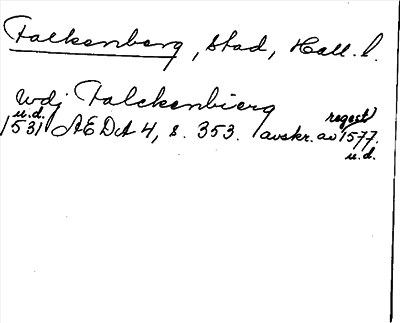 Falkenberg, stad, Hall. l.
wdj Falckenbierg
u.d. regest
1531 ÆDA 4, s. 353. avskr. av 1577.
u.d.